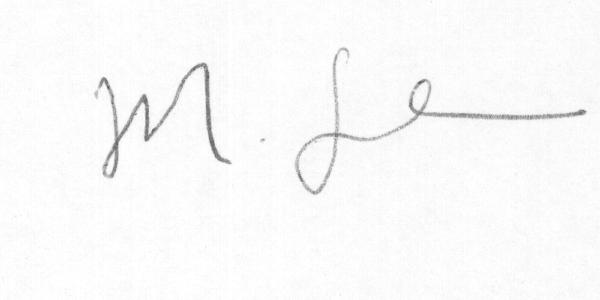 M. Le